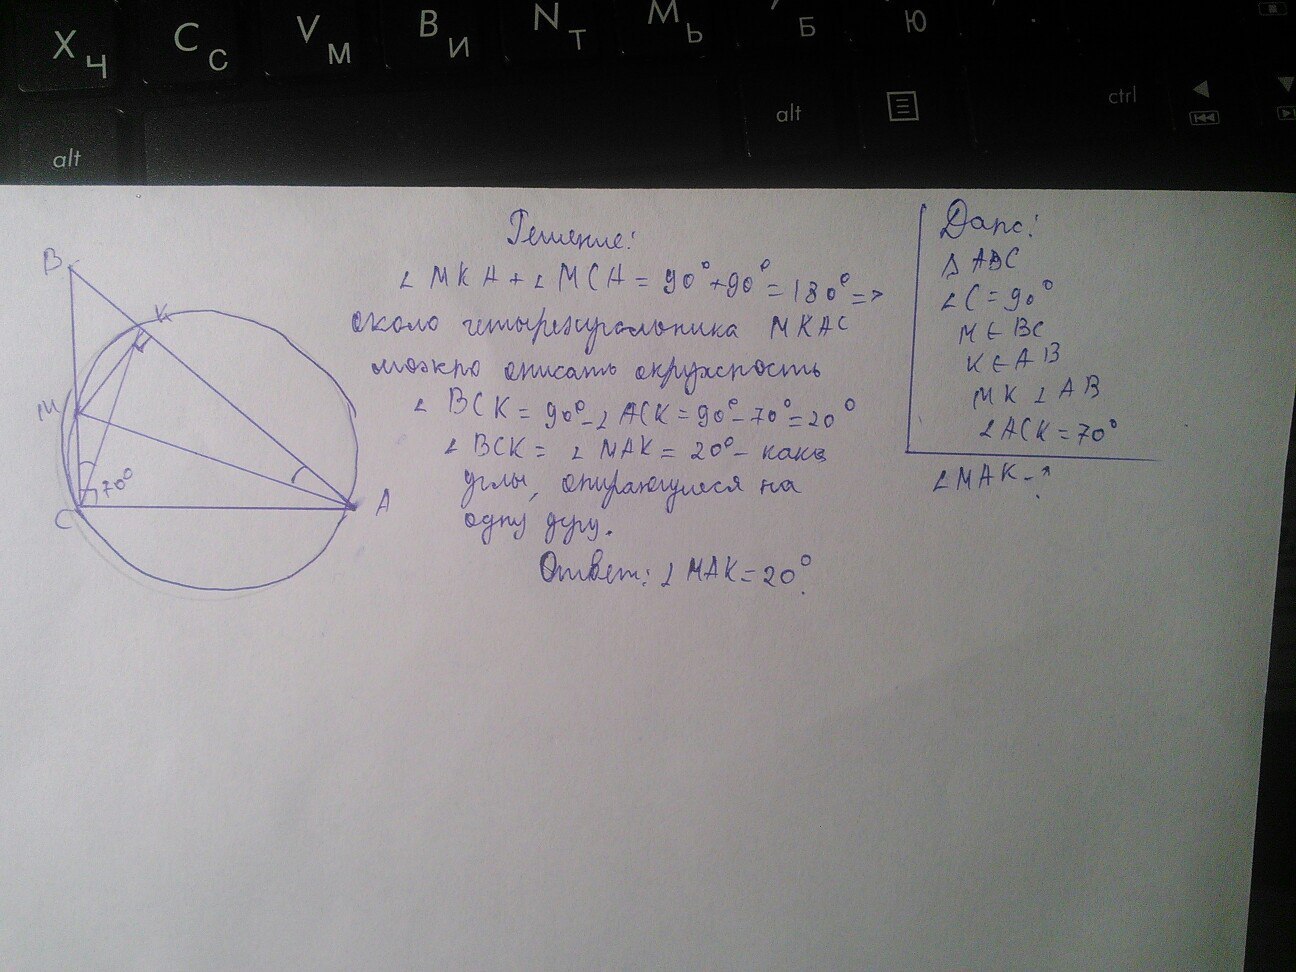 X Ч C С V М B И N Т M Ь Б Ю
alt ctrl
alt
Решение:
∠ MKA + ∠ MCA = 90° + 90° = 180° =>
около четырехугольника MKAC
можно описать окружность
∠ BCK = 90° - ∠ ACK = 90° - 70° = 20°
∠ BCK = ∠ MAK = 20° - как
углы, опирающиеся на
одну дугу.
Ответ: ∠ MAK = 20°.
Дано:
Δ ABC
∠ C = 90°
M ∈ BC
K ∈ AB
MK ⊥ AB
∠ ACK = 70°
∠ MAK - ?
B
K
M
70°
C
A